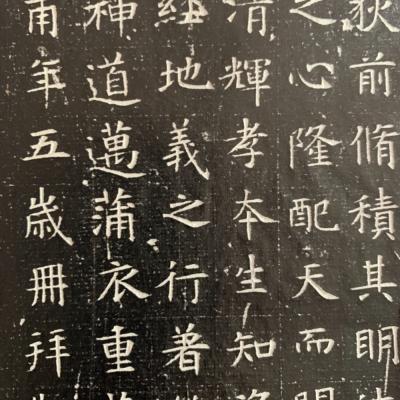 狄前脩積其明
之心隆配天而
清輝孝本生知
經地義之行著
神道邁蒲衣重
甫年五歲冊拜